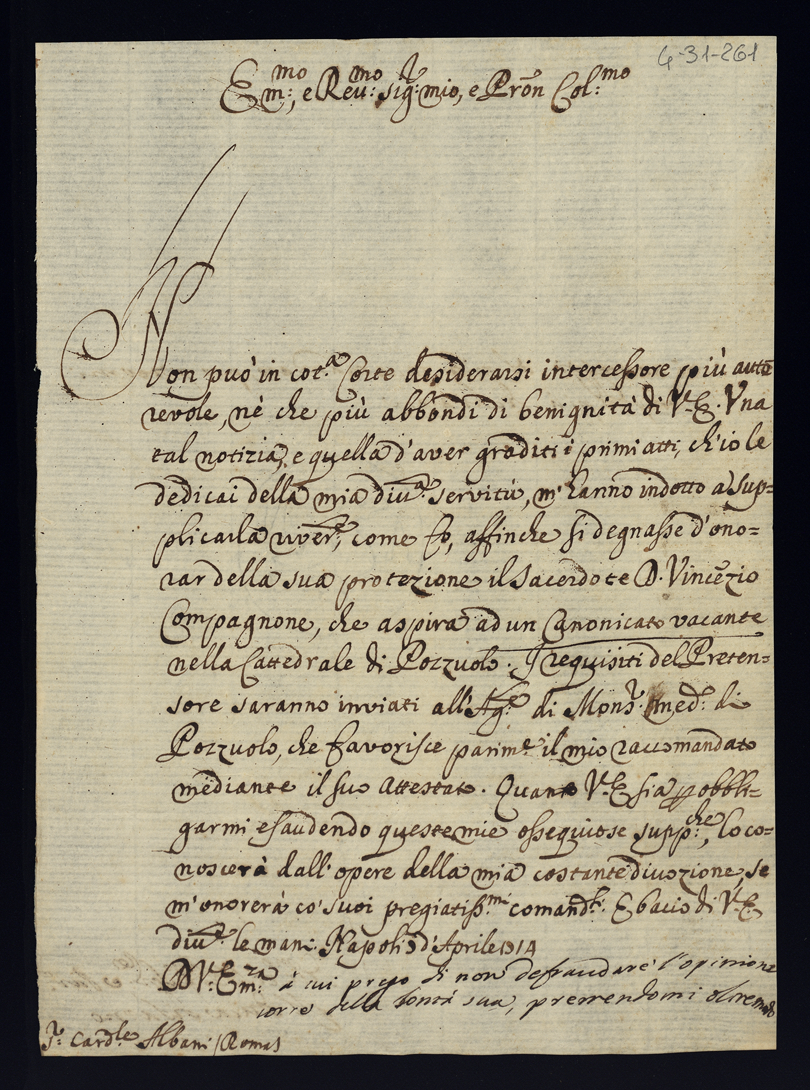 4-31-261
Em:mo, e Reu:mo Sig:r mio, e Pron Col:mo
Non può in cot.a Corte desiderarsi intercessore più auto
revole, nè che più abbondi di benignità di V.E. Vna
tal notizia, e quella d'aver graditi i primi atti, ch'io le
dedicai della mia diu.a servitù, m'hanno indotto a sup=
plicarla river.te, come fo, affinche si degnasse d'ono=
rar della sua protezione il Sacerdote D. Vincezio
Compagnone, che aspira ad un Canonicato vacante
nella Cattedrale di Pozzuolo. I requisiti del Preten=
sore saranno inviati all'Ag.te di Mons.r med.o di
Pozzuolo, che favorisce parim.te il mio raccomandato
mediante il suo Attestato. Quanto V.E. sia p obbli=
garmi esaudendo queste mie ossequiose supp.che, lo co=
noscerà dall'opere della mia costante divozione, se
m'onorerà co' suoi pregiatiss.mi comand.ti. E bacio di V.E.
diu.te le mani. Napoli 3 d'Aprile 1714
D V. Em:za à cui prego di non defraudare l'opinione
della bontà sua, premendomi oltremodo
S.r Card.le Albani / Roma